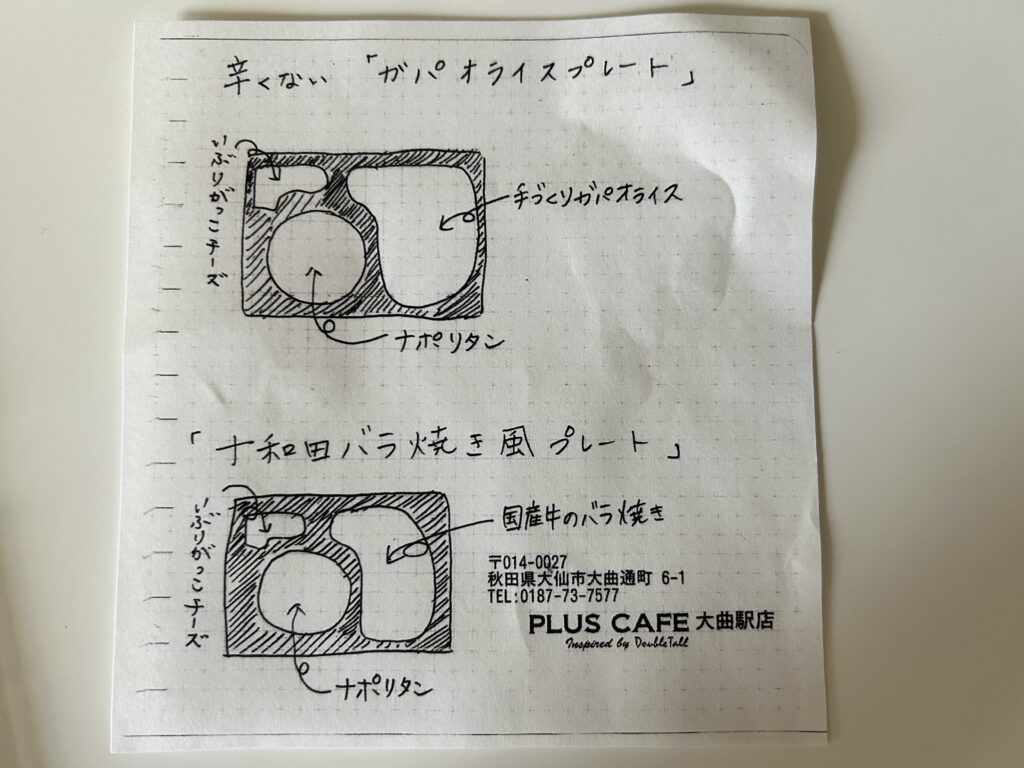 辛くない「ガパオライスプレート」
いぶりがっこチーズ
手づくりガパオライス
ナポリタン
「十和田バラ焼き風プレート」
いぶりがっこチーズ
国産牛のバラ焼き
ナポリタン
〒014-0027
秋田県大仙市大曲通町 6-1
TEL:0187-73-7577
PLUS CAFE 大曲駅店
Inspired by DoubleTall